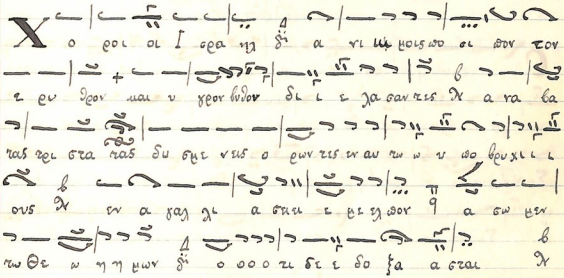 Χο ροι οι Ι σρα ηλ Δι α νι κμοις πο σι πον τον
ε ρυ θρον και υ γρον βυθον δι ι ε λα σαν τες λ α να βα
τας τρι στα τας δυ σμε νεις ο ρων τες εν αυ τω ω υ πο βρυχι ι ι
ους λ εν α γαλ λι α σει ε με ελπον q α σω μεν
τω Θε ω η η μων Δι ο ο ο ο τι δε ε δο ξα α σται λ